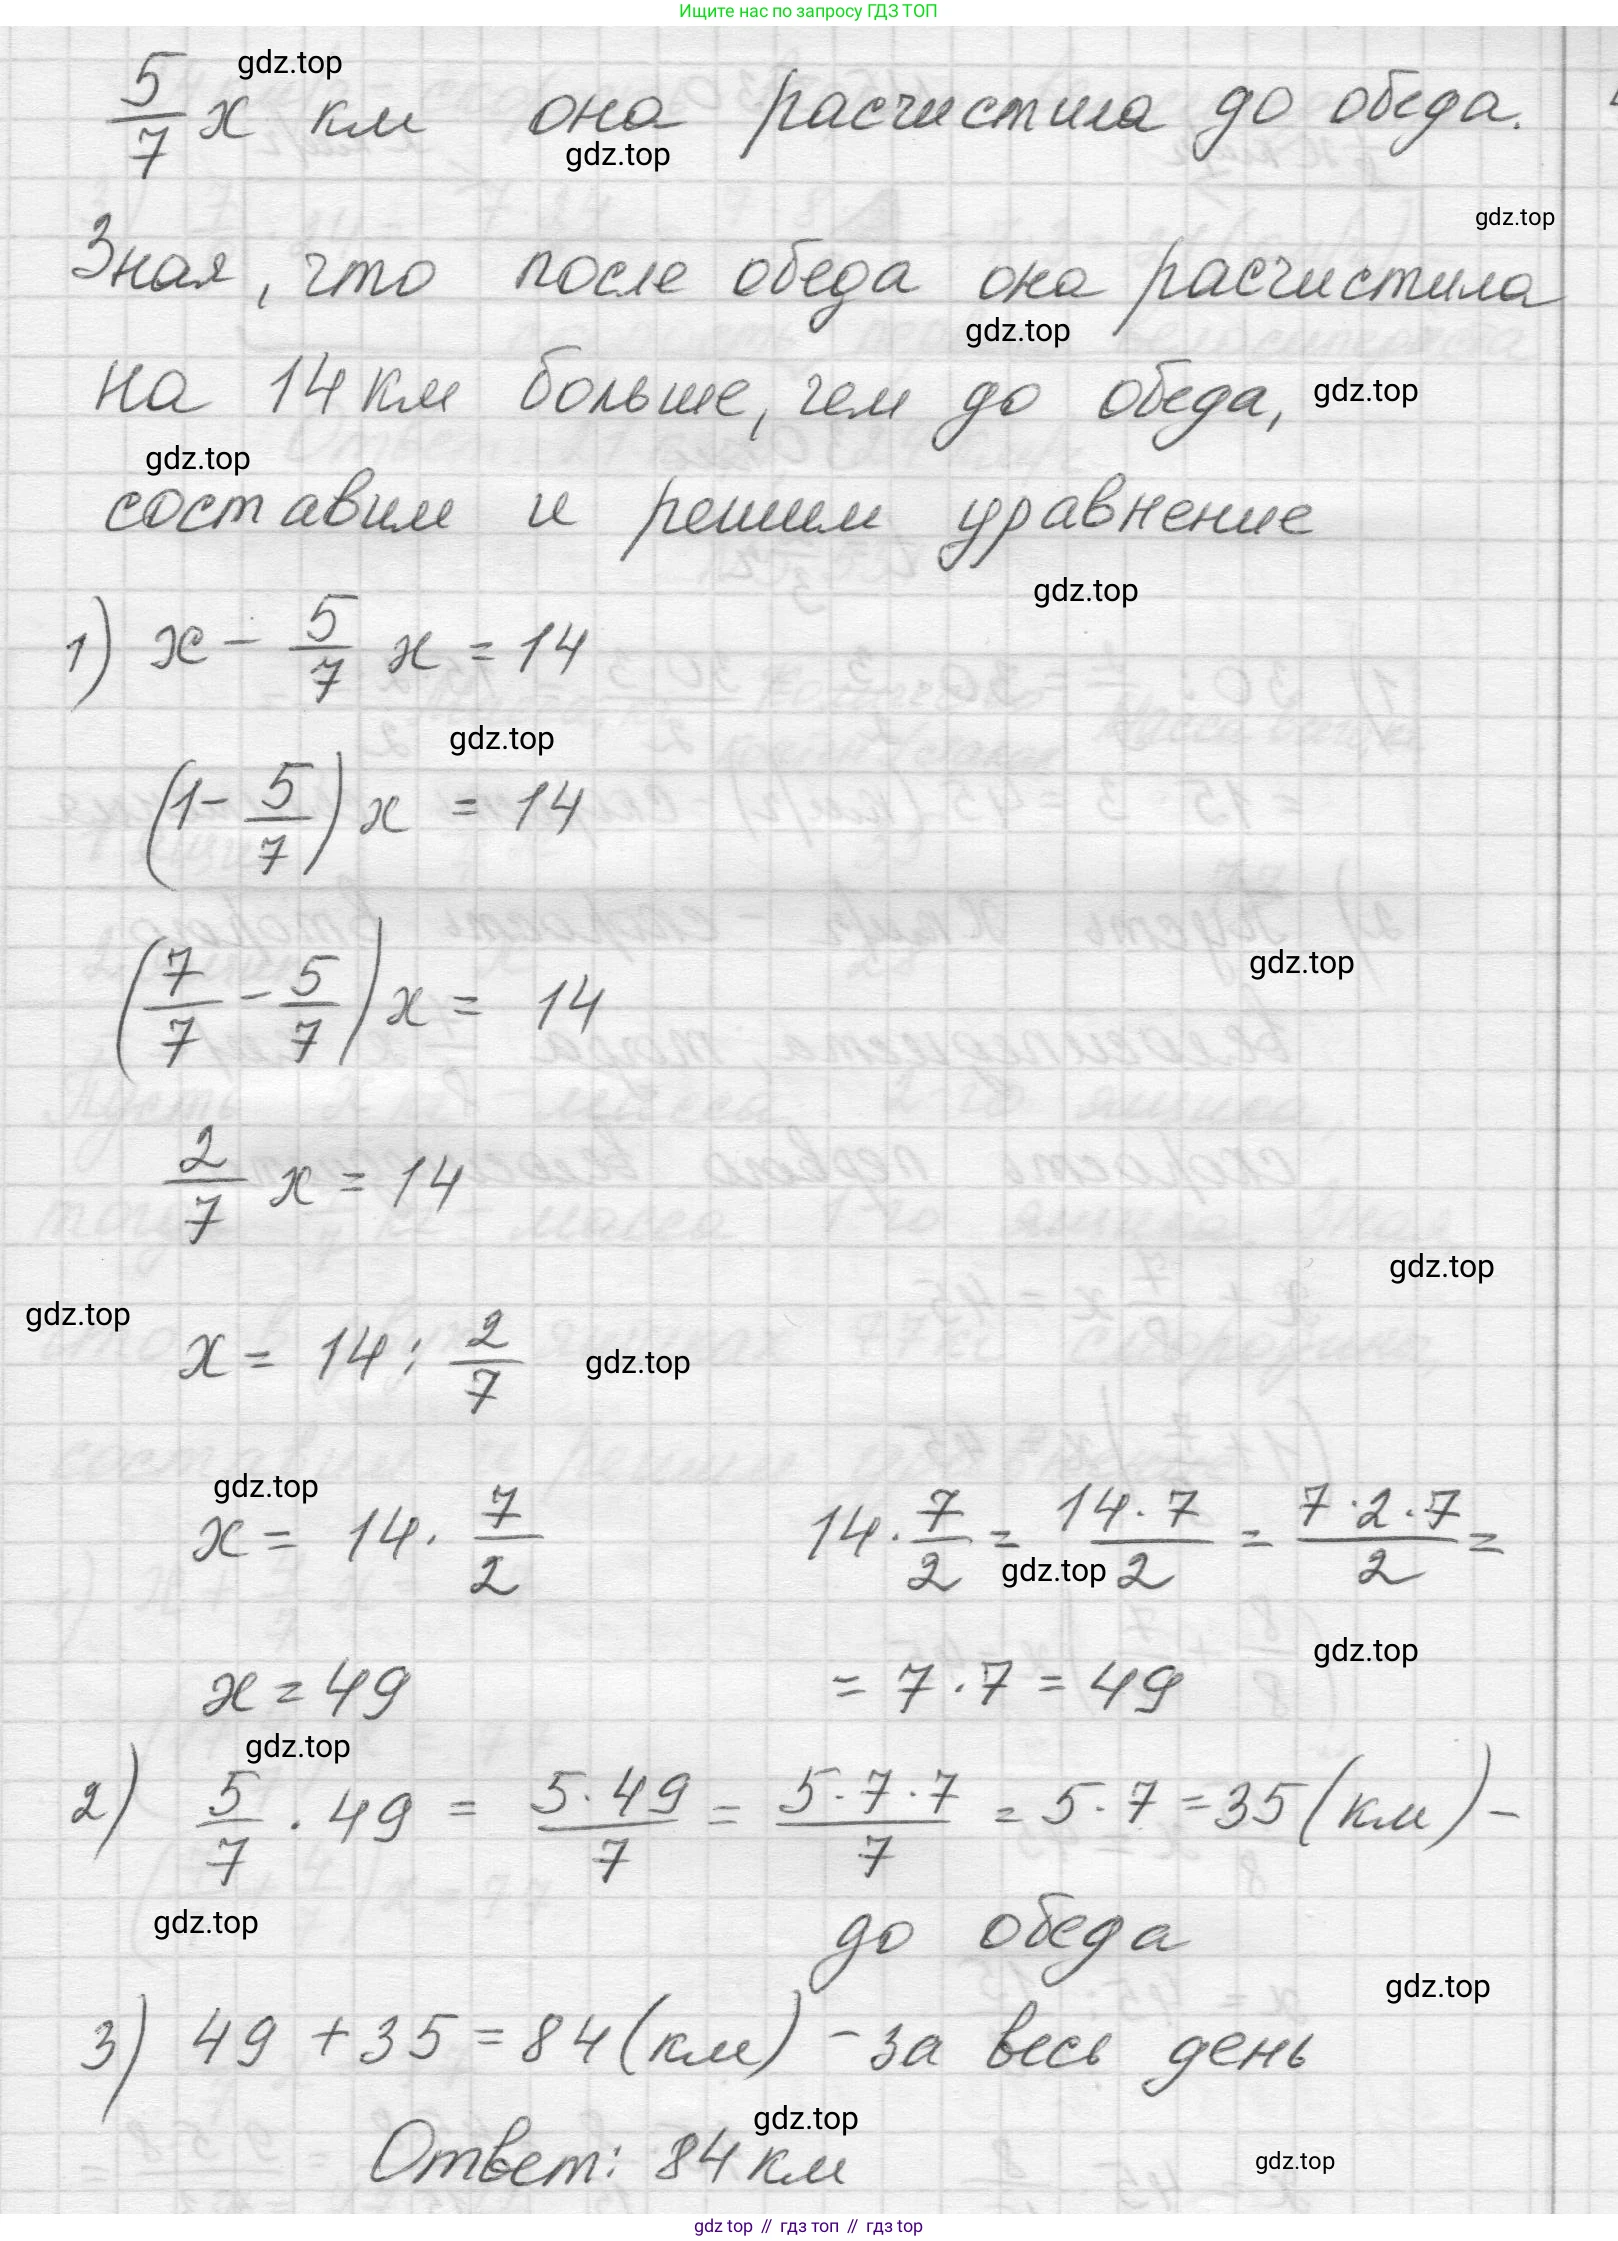 Ищите нас по запросу ГДЗ ТОП
gdz.top
5/7 x км она расчистила до обеда.
gdz.top
gdz.top
Зная, что после обеда она расчистила
gdz.top
на 14 км больше, чем до обеда,
gdz.top
gdz.top
составим и решим уравнение
gdz.top
1) x - 5/7 x = 14
gdz.top
(1 - 5/7) x = 14
gdz.top
(7/7 - 5/7) x = 14
2/7 x = 14
gdz.top
gdz.top
x = 14 : 2/7
gdz.top
gdz.top
x = 14 · 7/2 14 · 7/2 = 14 · 7/2 = 7 · 2 · 7/2 =
gdz.top
gdz.top
x = 49 = 7 · 7 = 49
gdz.top
2) 5/7 · 49 = 5 · 49/7 = 5 · 7 · 7/7 = 5 · 7 = 35 (км) -
gdz.top
до обеда
gdz.top
3) 49 + 35 = 84 (км) - за весь день
gdz.top
Ответ: 84 км
gdz.top
gdz top // гдз топ // гдз top